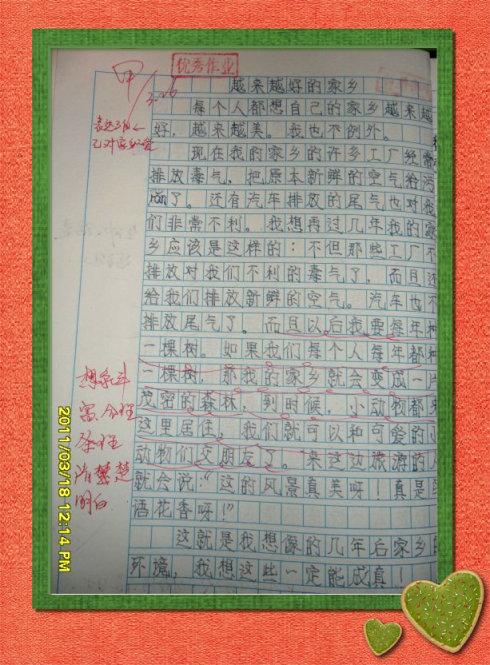 优秀作业
甲
3.26
越来越好的家乡
每个人都想自己的家乡越来越
好，越来越美。我也不例外。
现在我的家乡的许多工厂经常
排放毒气，把原本新鲜的空气给污
染了。还有汽车排放的尾气也对我
们非常不利。我想再过几年我的家
乡应该是这样的：不但那些工厂不
排放对我们不利的毒气了，而且还
给我们排放新鲜的空气。汽车也不
排放尾气了。而且以后我要每年种
一棵树。如果我们每个人每年都种
一棵树，那我的家乡就会变成一片
茂密的森林，到时候，小动物都来
这里居住，我们就可以种可爱的小
动物们交朋友了。来这边旅游的人
就会说：“这的风景真美呀！真是鸟
语花香呀！”
这就是我想像的几年后家乡的
环境，我想这些一定能成真！
想象丰
富
条理
清楚
明白
2011/03/18 12:14 PM